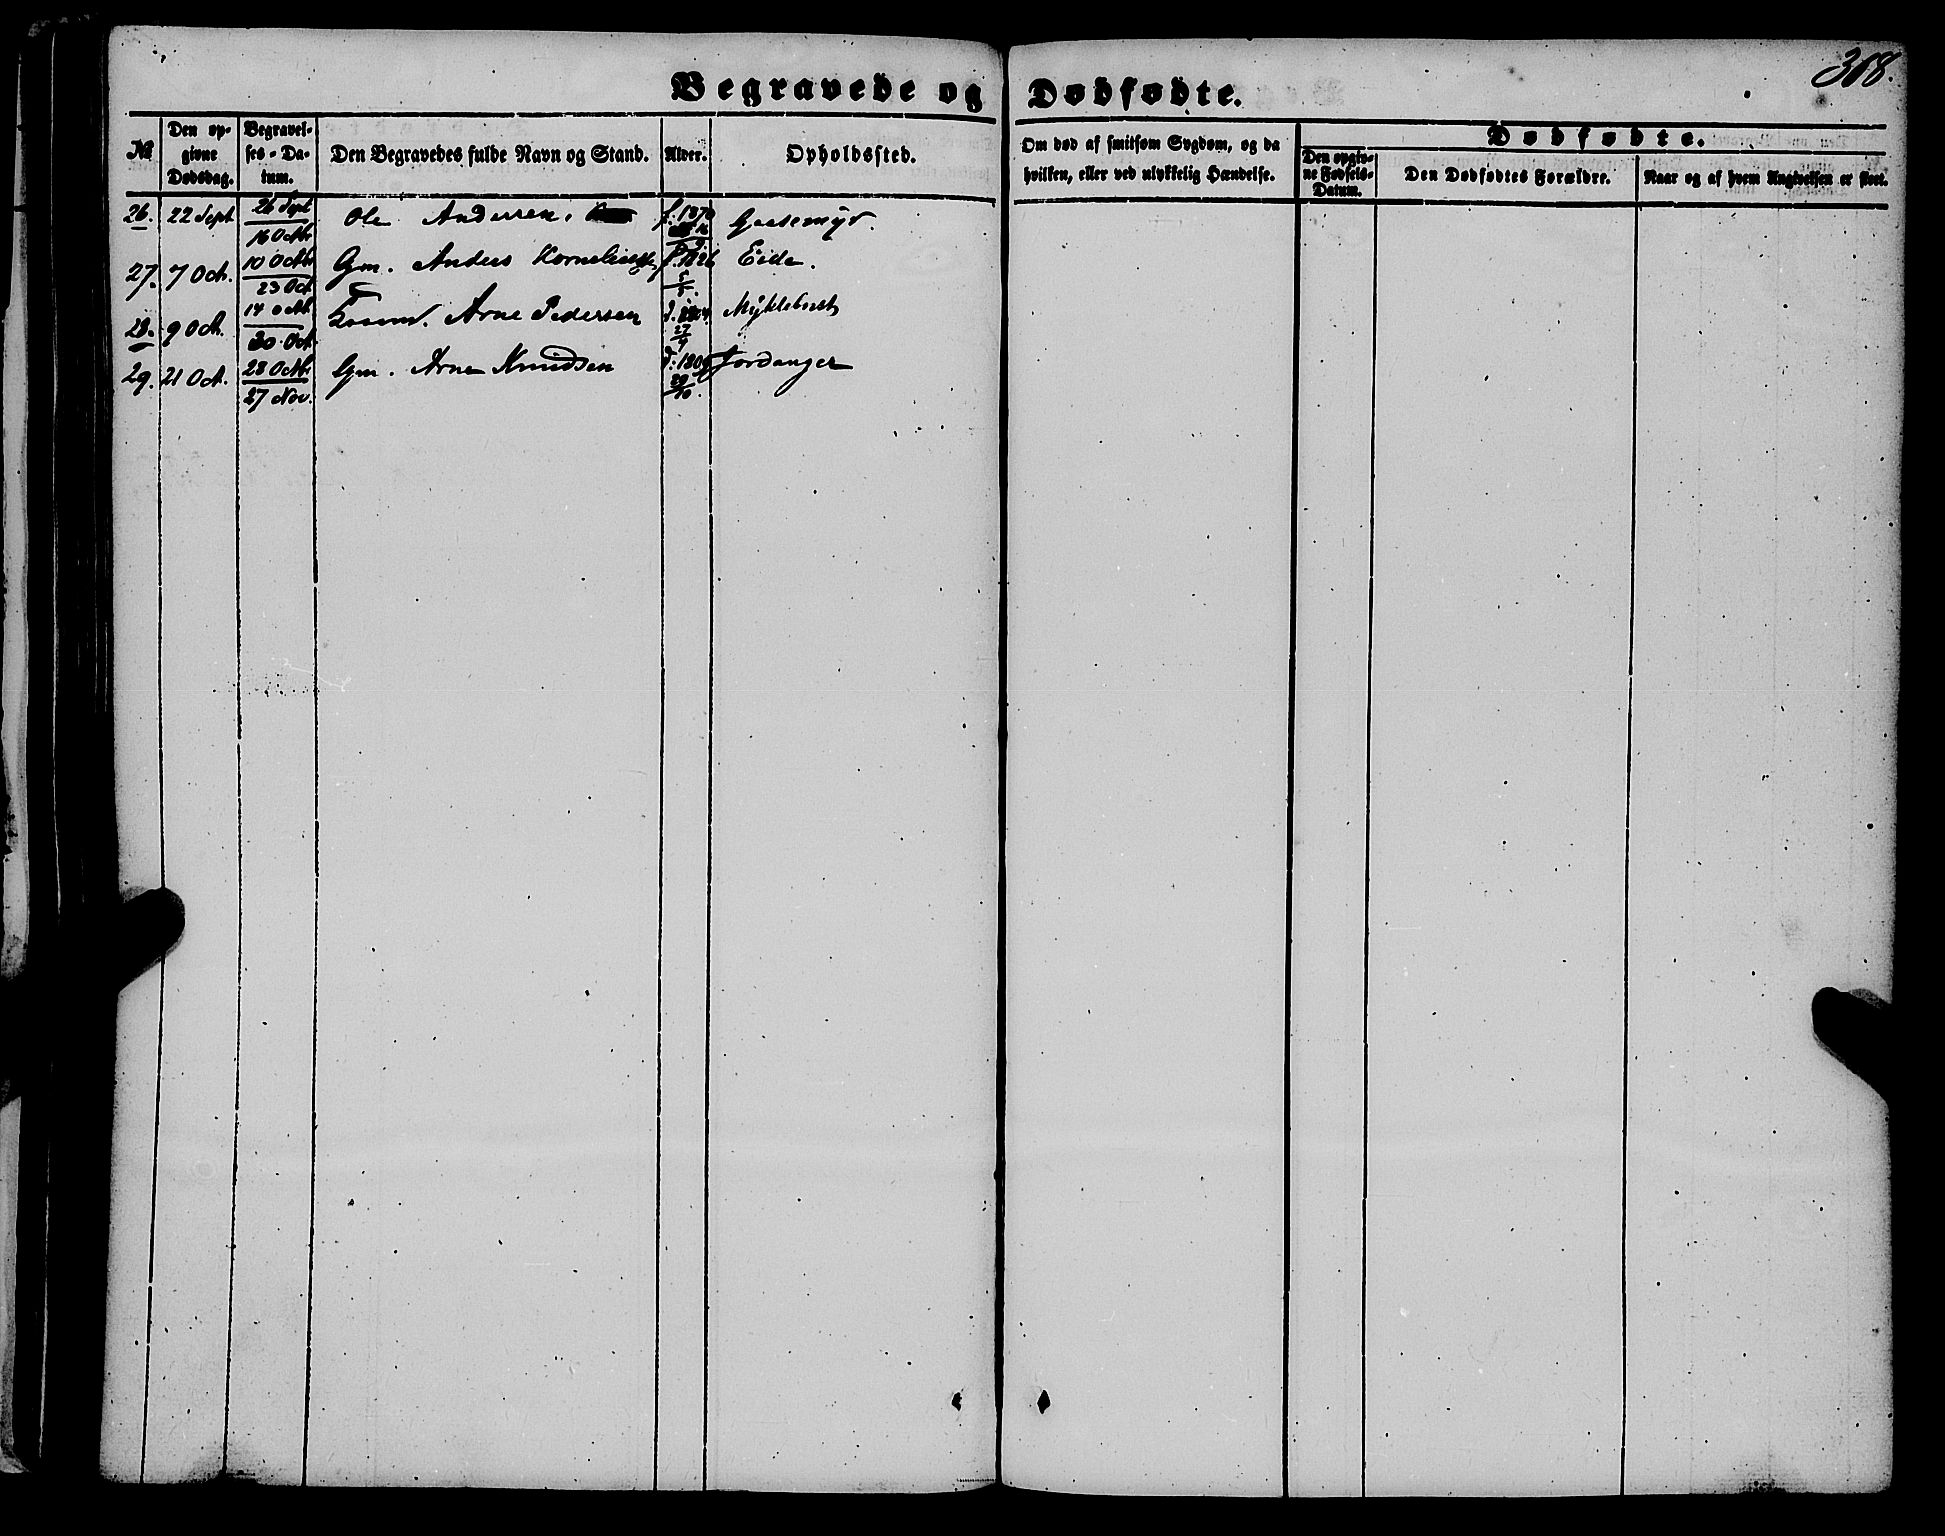 318.
Begravede og Dødfødte.
№ Den opgivne Dødsdag. Begravelses-Datum. Den Begravedes fulde Navn og Stand. Alder. Opholdssted. Om død af smitsom Sygdom, og da hvilken, eller ved ulykkelig Hændelse. Dødfødte. Den opgivne Fødsels-Datum. Den Dødfødtes Forældre. Naar og af hvem Angivelsen er skeet.
26. 22 Sept 26 Sept Ole Andersen. f. 1870
16 Octbr
27. 7 Oct. 10 Octbr Gm. Anders f. 1826 Eide.
23 Oct 5/5.
28. 9 Oct. 14 Octbr Arne Pedersen Myklebust
30 Oct 27/9
29. 21 Oct. 28 Octbr Gm. Arne Knudsen Jordanger
27 Nov.